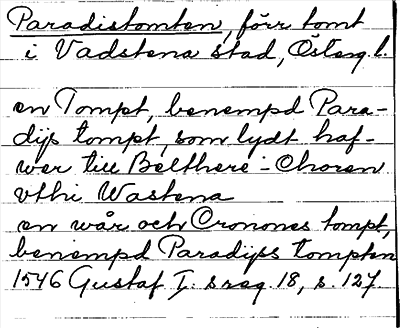 Paradistomten, förr tomt
i Vadstena stad, Österg. l.
en Tompt, benempd Para-
dijs tompt, som lydt haf-
wer till Belthere-Choren
vthi Wastena
en wår och Cronones tompt,
benempd Paradijss tompten
1546 Gustaf I:s reg. 18, s. 127